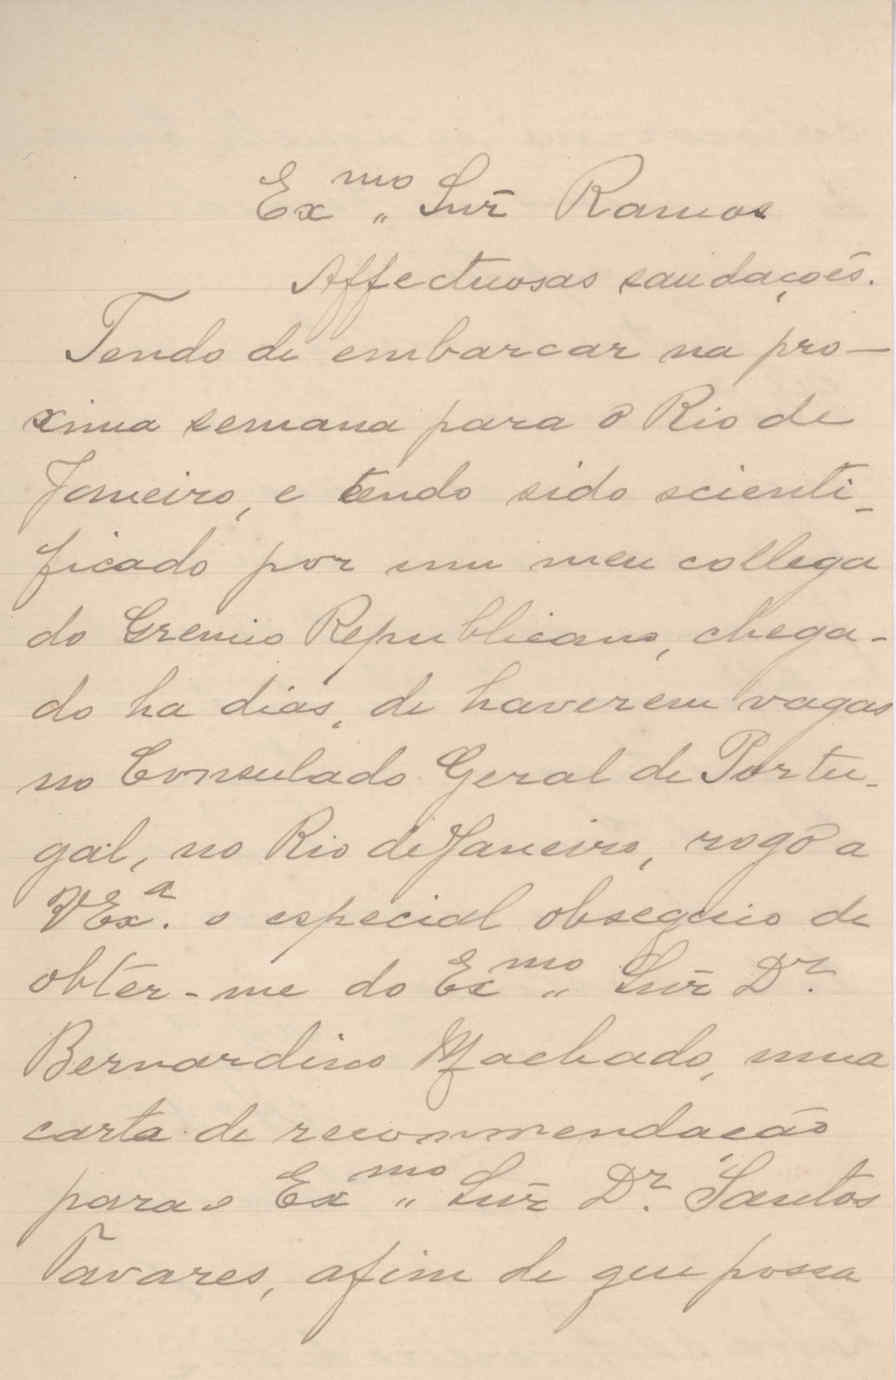 Exmo„ Snr̄ Ramos
Affectuosas saudações.
Tendo de embarcar na pro-
xima semana para o Rio de
Janeiro, e tendo sido scienti-
ficado por um meu collega
do Gremio Republicano, chega-
do ha dias, de haverem vagas
no Consulado Geral de Portu-
gal, no Rio de Janeiro, rogo a
VExa. o especial obsequio de
obter-me do Exmo„ Snr̄ Dr.
Bernardino Machado, uma
carta de recommendacão
para o Exmo„ Snr̄ Dr. Santos
Tavares, afim de que possa